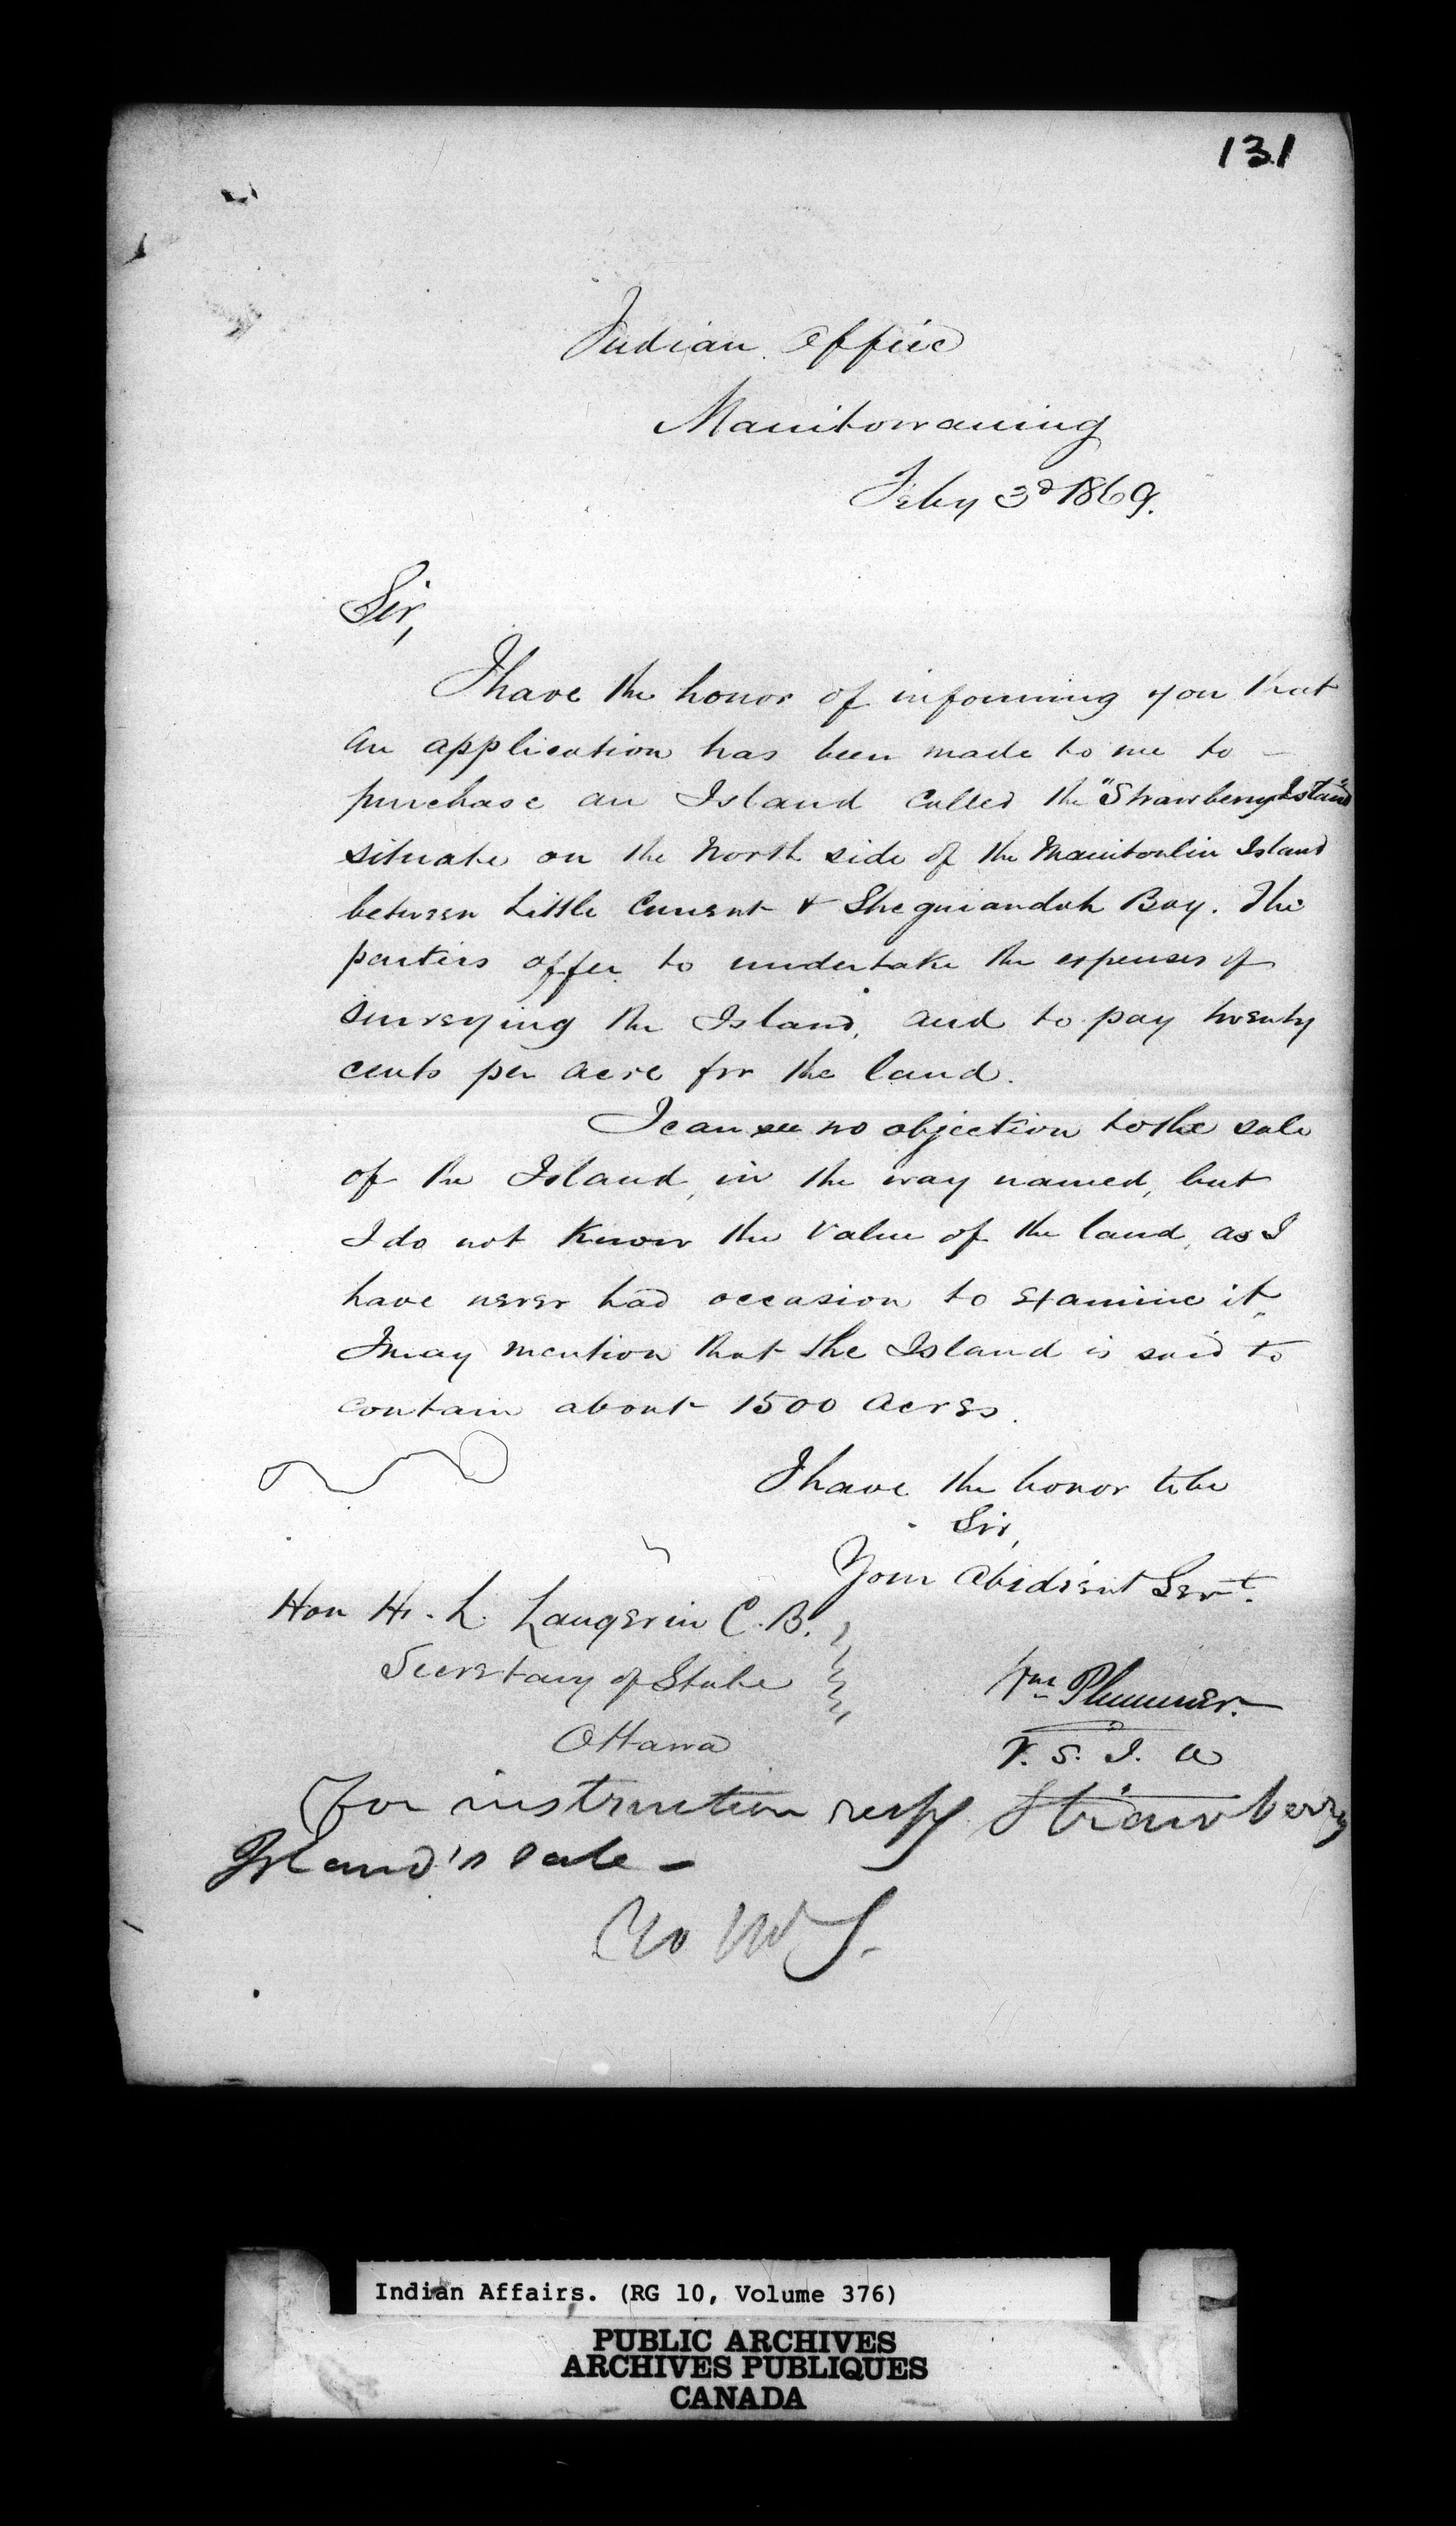 131
Indian Office
Manitowaning
Feby 3d 1869.
Sir,
I have the honor of informing you that
an application has been made to me to
purchase an Island called the "Strawberry Island"
situate on the North side of the Manitoulin Island
between Little Current & Sheguiandah Bay. The
parties offer to undertake the expenses of
surveying the Island, and to pay twenty
cents per acre for the land.
I can see no objection to the sale
of the Island, in the way named, but
I do not Know the value of the land, as I
have never had occasion to examine it.
I may mention that the Island is said to
contain about 1500 acres.
I have the honor to be
Sir,
Your Obedient Servt.
Hon H. L. Langevin C.B.
Secretary of State
Ottawa
Wm Plummer.
V. S. I. A
For instruction respg Strawberry
Island's sale -
Indian Affairs. (RG 10, Volume 376)
PUBLIC ARCHIVES
ARCHIVES PUBLIQUES
CANADA